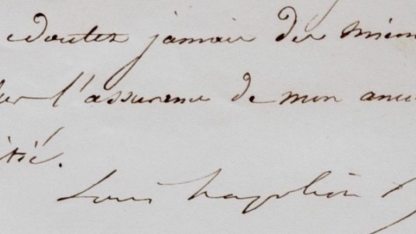 doutez jamais des mien
l'assurance de mon anc
itié.
Louis Napoléon